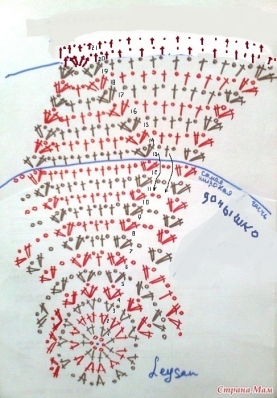 21
20
19
18
17
16
15
13
12
11
10
самая
широкая
часть
донышко
Leysan
Страна Мам